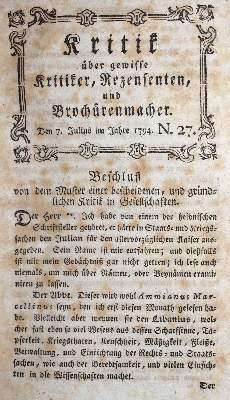 Kritik
über gewisse
Kritiker, Rezensenten,
und
Brochürenmacher.
Den 7. Julius im Jahre 1794. N. 27.
Beschluß
von dem Muster einer bescheidenen, und gründ-
lichen Kritik in Gesellschaften.
Der Herr **. Ich habe von einem der heidnischen
Schriftsteller gehört, er hätte in Staats- und Kriegs-
sachen den Julian für den allervorzüglichsten Kaiser aus-
gegeben. Sein Name ist mir entfahren; und dießfalls
ist mir mein Gedächtniß gar nicht getreu; ich lese auch
niemals, um mich über Namen, oder Beynamen examini-
ren zu lassen.
Der Abbé. Dieser wird wohl Ammianus Mar-
cellinus seyn, den ich erst diesen Monath gelesen ha-
be. Vielleicht aber meynen sie den Libanius, wel-
cher fast eben so viel Wesens aus dessen Scharfsinne, Ta-
pferkeit, Kriegsthaten, Keuschheit, Mäßigkeit, Fleiße,
Verwaltung, und Einrichtung der Rechts- und Staats-
sachen, wie auch der Beredsamkeit, und vielen Einsich-
ten in die Wissenschaften machet.
Der